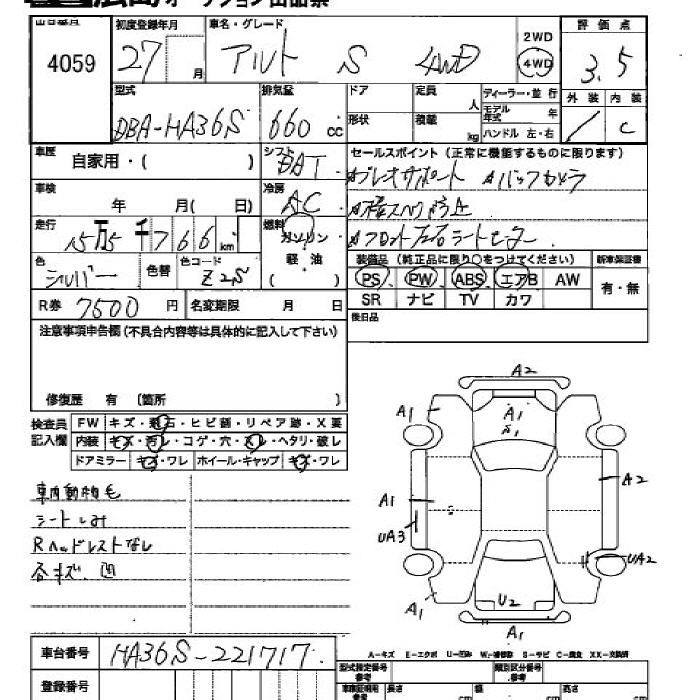 広島オークション出品票
出品番号 4059
初度登録年月 27 月
車名・グレード アルト S 4WD
2WD
4WD
評価点 3.5
外装 内装 C
型式 DBA-HA36S
排気量 660 cc
ドア 形状
定員 人
積載 kg
ディーラー・並行
モデル年式 年
ハンドル 左・右
車歴 自家用・( )
シフト
セールスポイント(正常に機能するものに限ります)
車検 年 月( 日)
冷房 AC
走行 15万5千766km
燃料 ガソリン
軽油
( )
色 シルバー 色替
色コード Z2S
装備品(純正品に限り○をつけてください) 新車保証書
PS PW ABS エアB AW 有・無
SR ナビ TV カワ
後日品
R券 7500円 名変期限 月 日
注意事項申告欄(不具合内容等は具体的に記入して下さい)
修復歴 有 〔箇所 〕
検査員記入欄
FW キズ・飛石・ヒビ割・リペア跡・X要
内装 キズ・汚レ・コゲ・穴・スレ・ヘタリ・破レ
ドアミラー キズ・ワレ ホイール・キャップ キズ・ワレ
車内動物毛
シートしみ
Rヘッドレストなし
各キズ、凹
A2
A1
A1
A1
A1
A2
A1
UA3
UA2
U2
A1
A1
車台番号 HA36S-221717
登録番号
A-キズ E-エクボ U-凹み W-補修跡 S-サビ C-腐食 XX-交換済
型式指定番号 参考
類別区分番号 参考
長さ cm 幅 cm 高さ cm